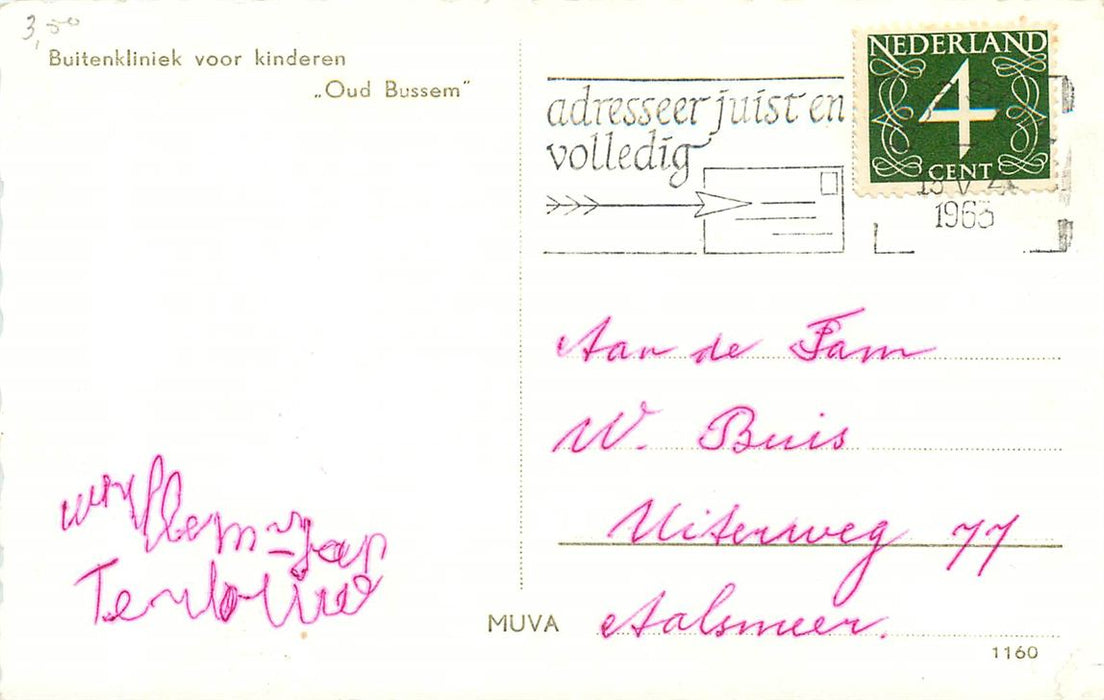 3,50
Buitenkliniek voor kinderen
„Oud Bussem"
adresseer juist en
volledig
NEDERLAND
4
CENT
1963
Aan de Fam
W. Buis
Uiterweg 77
Aalsmeer.
Willem-Jan
MUVA
1160